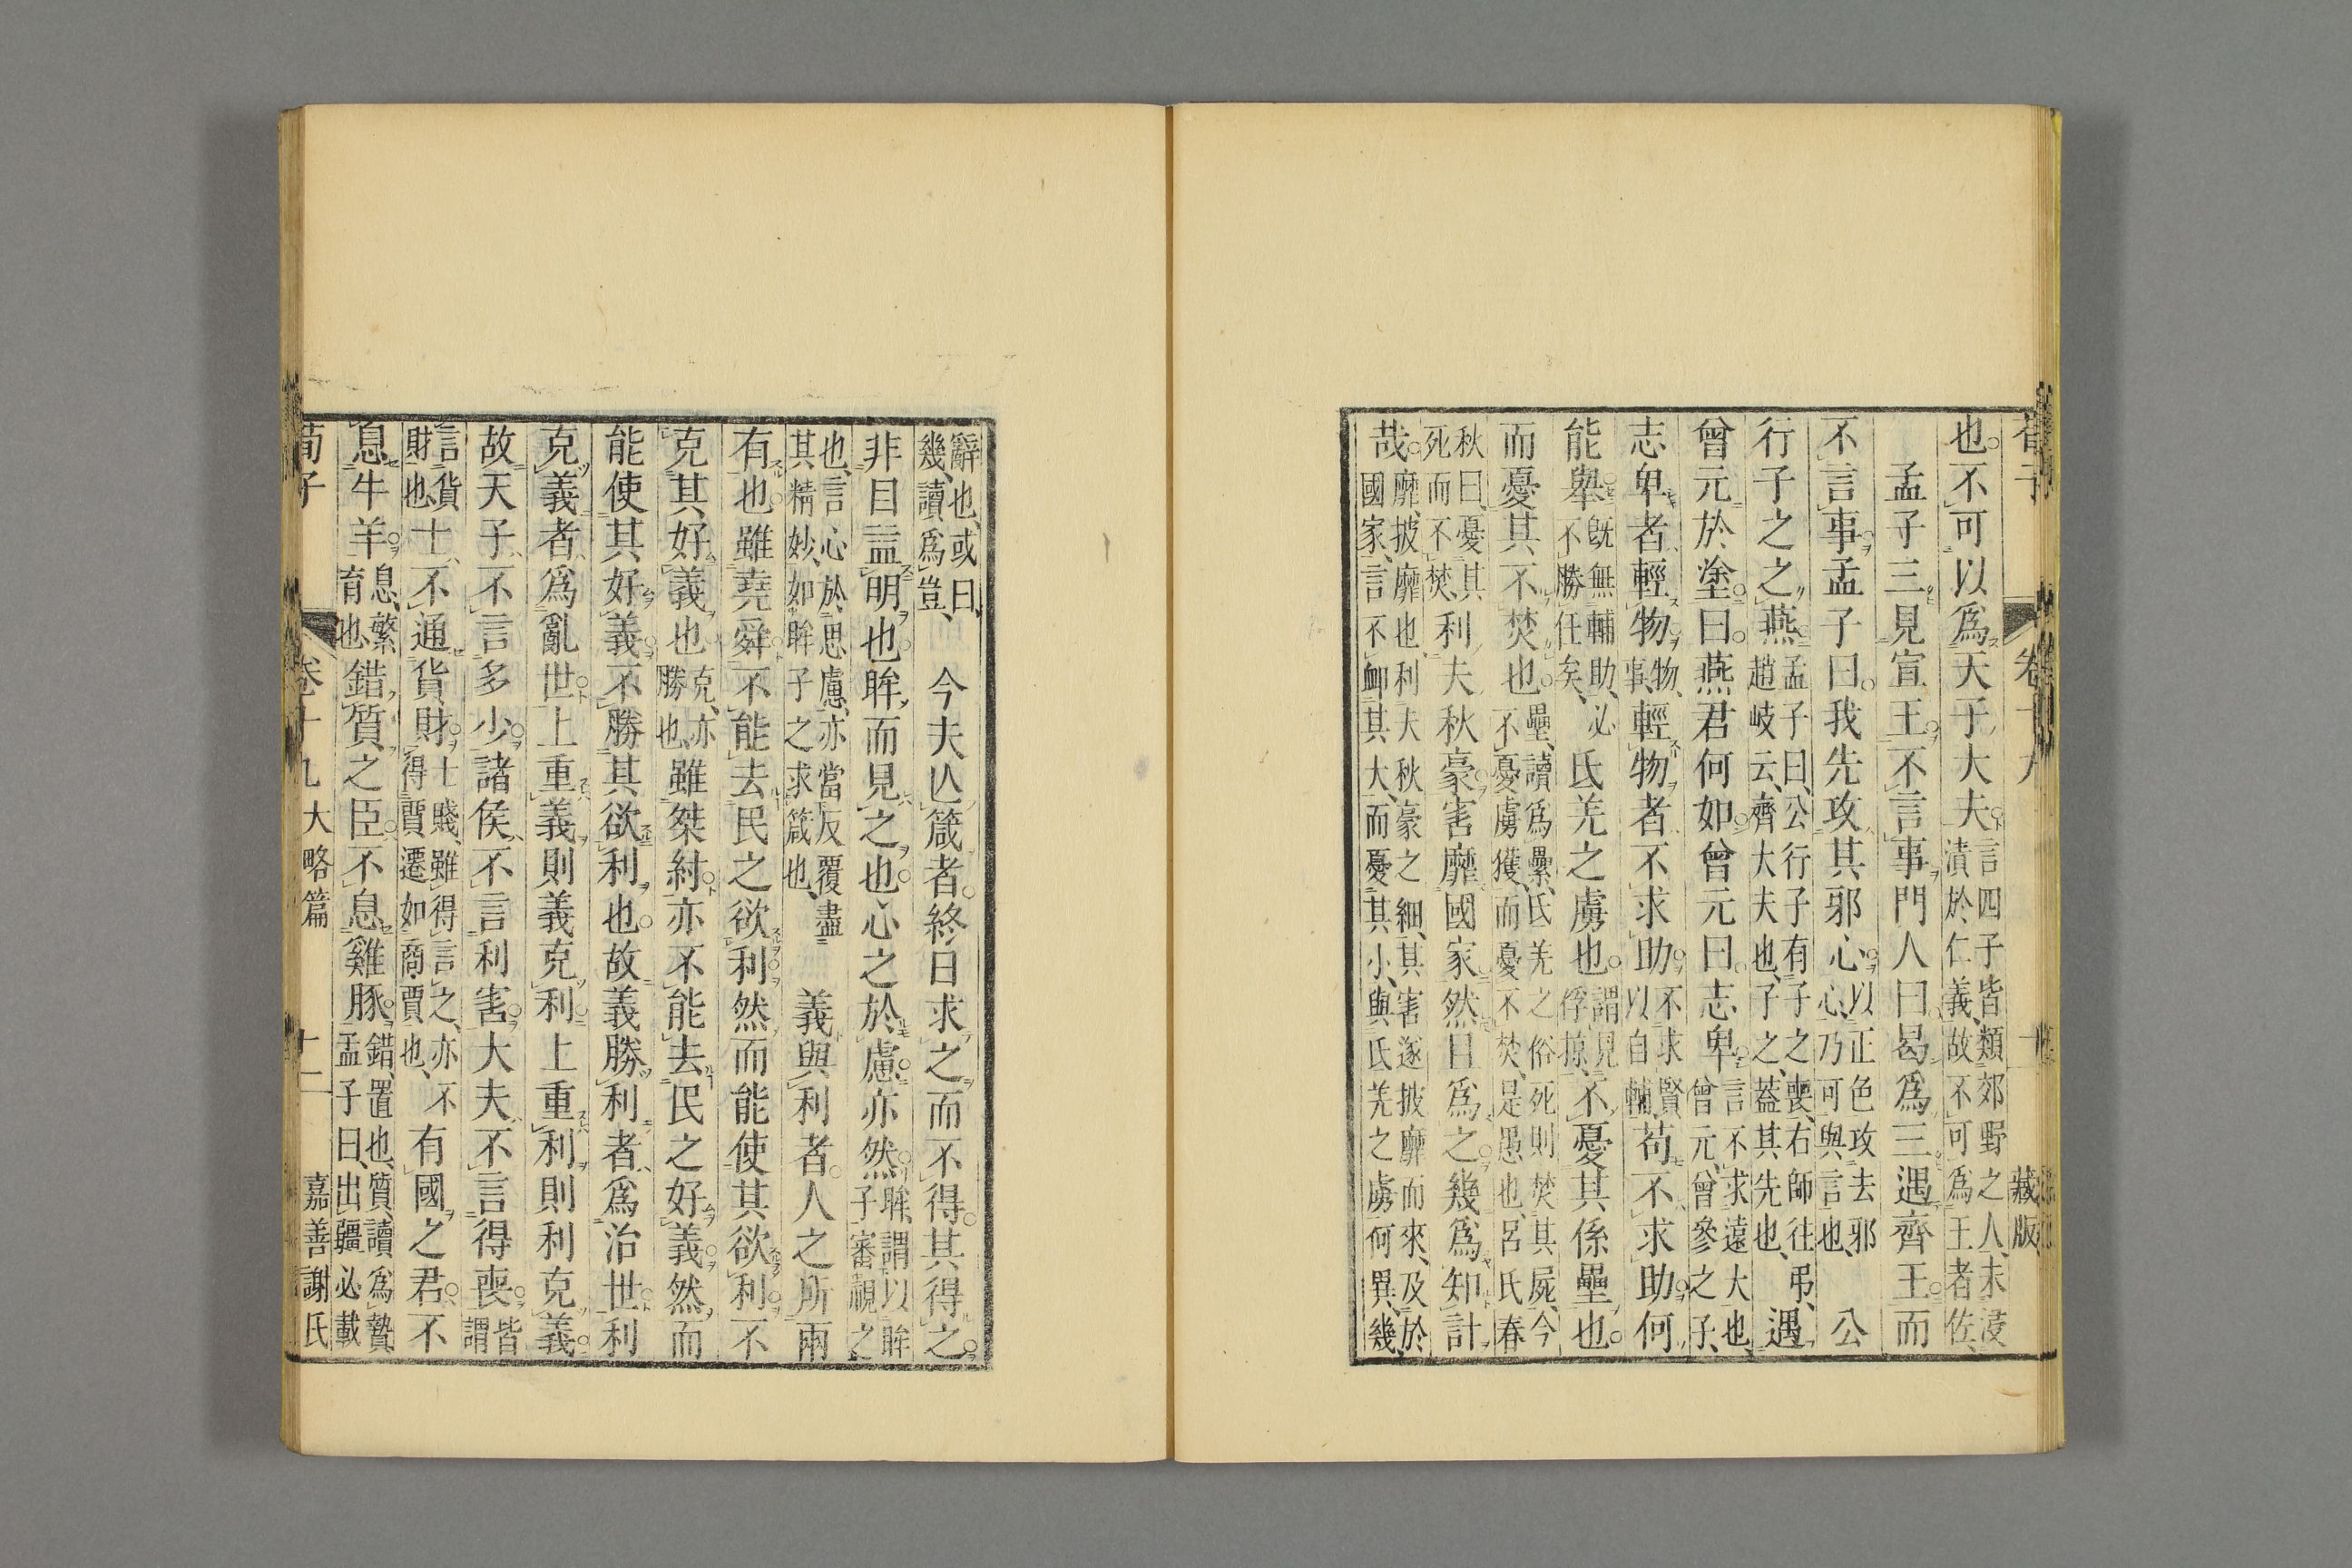 藏版
也不可以爲天子大夫言四子皆類郊野之人未浸漬於仁義故不可爲王者佐
孟子三見宣王不言事門人曰曷爲三遇齊王而
不言事孟子曰我先攻其邪心以正色攻去邪心乃可與言也公
行子之之燕孟子曰公行子有子之喪右師往弔趙岐云齊大夫也子之蓋其先也遇
曾元於塗曰燕君何如曾元曰志卑言不求遠大也曾元曾參之子
志卑者輕物物事輕物者不求助不求賢以自輔苟不求助何
能舉旣無輔助必不勝任矣氐羌之虜也謂見俘掠不憂其係壘也
而憂其不焚也壘讀爲纍氐羌之俗死則焚其屍今不憂虜獲而憂不焚是愚也呂氏春
秋曰憂其死而不焚利夫秋豪害靡國家然且爲之幾爲知計
哉靡披靡也利夫秋豪之細其害遂披靡而來及於國家言不卹其大而憂其小與氐羌之虜何異幾
辭也或曰幾讀爲豈今夫亾箴者終日求之而不得其得之
非目益明也眸而見之也心之於慮亦然眸謂以眸子審視之
也言心於思慮亦當反覆盡其精妙如眸子之求箴也義與利者人之所兩
有也雖堯舜不能去民之欲利然而能使其欲利不
克其好義也克亦勝也雖桀紂亦不能去民之好義然而
能使其好義不勝其欲利也故義勝利者爲治世利
克義者爲亂世上重義則義克利上重利則利克義
故天子不言多少諸侯不言利害大夫不言得喪皆謂
言貨財也士不通貨財士賤雖得言之亦不得賈遷如商賈也有國之君不
息牛羊息繁育也錯質之臣不息雞豚錯置也質讀爲贄孟子曰出疆必載
荀子 卷十九 大略篇 十二 嘉善謝氏